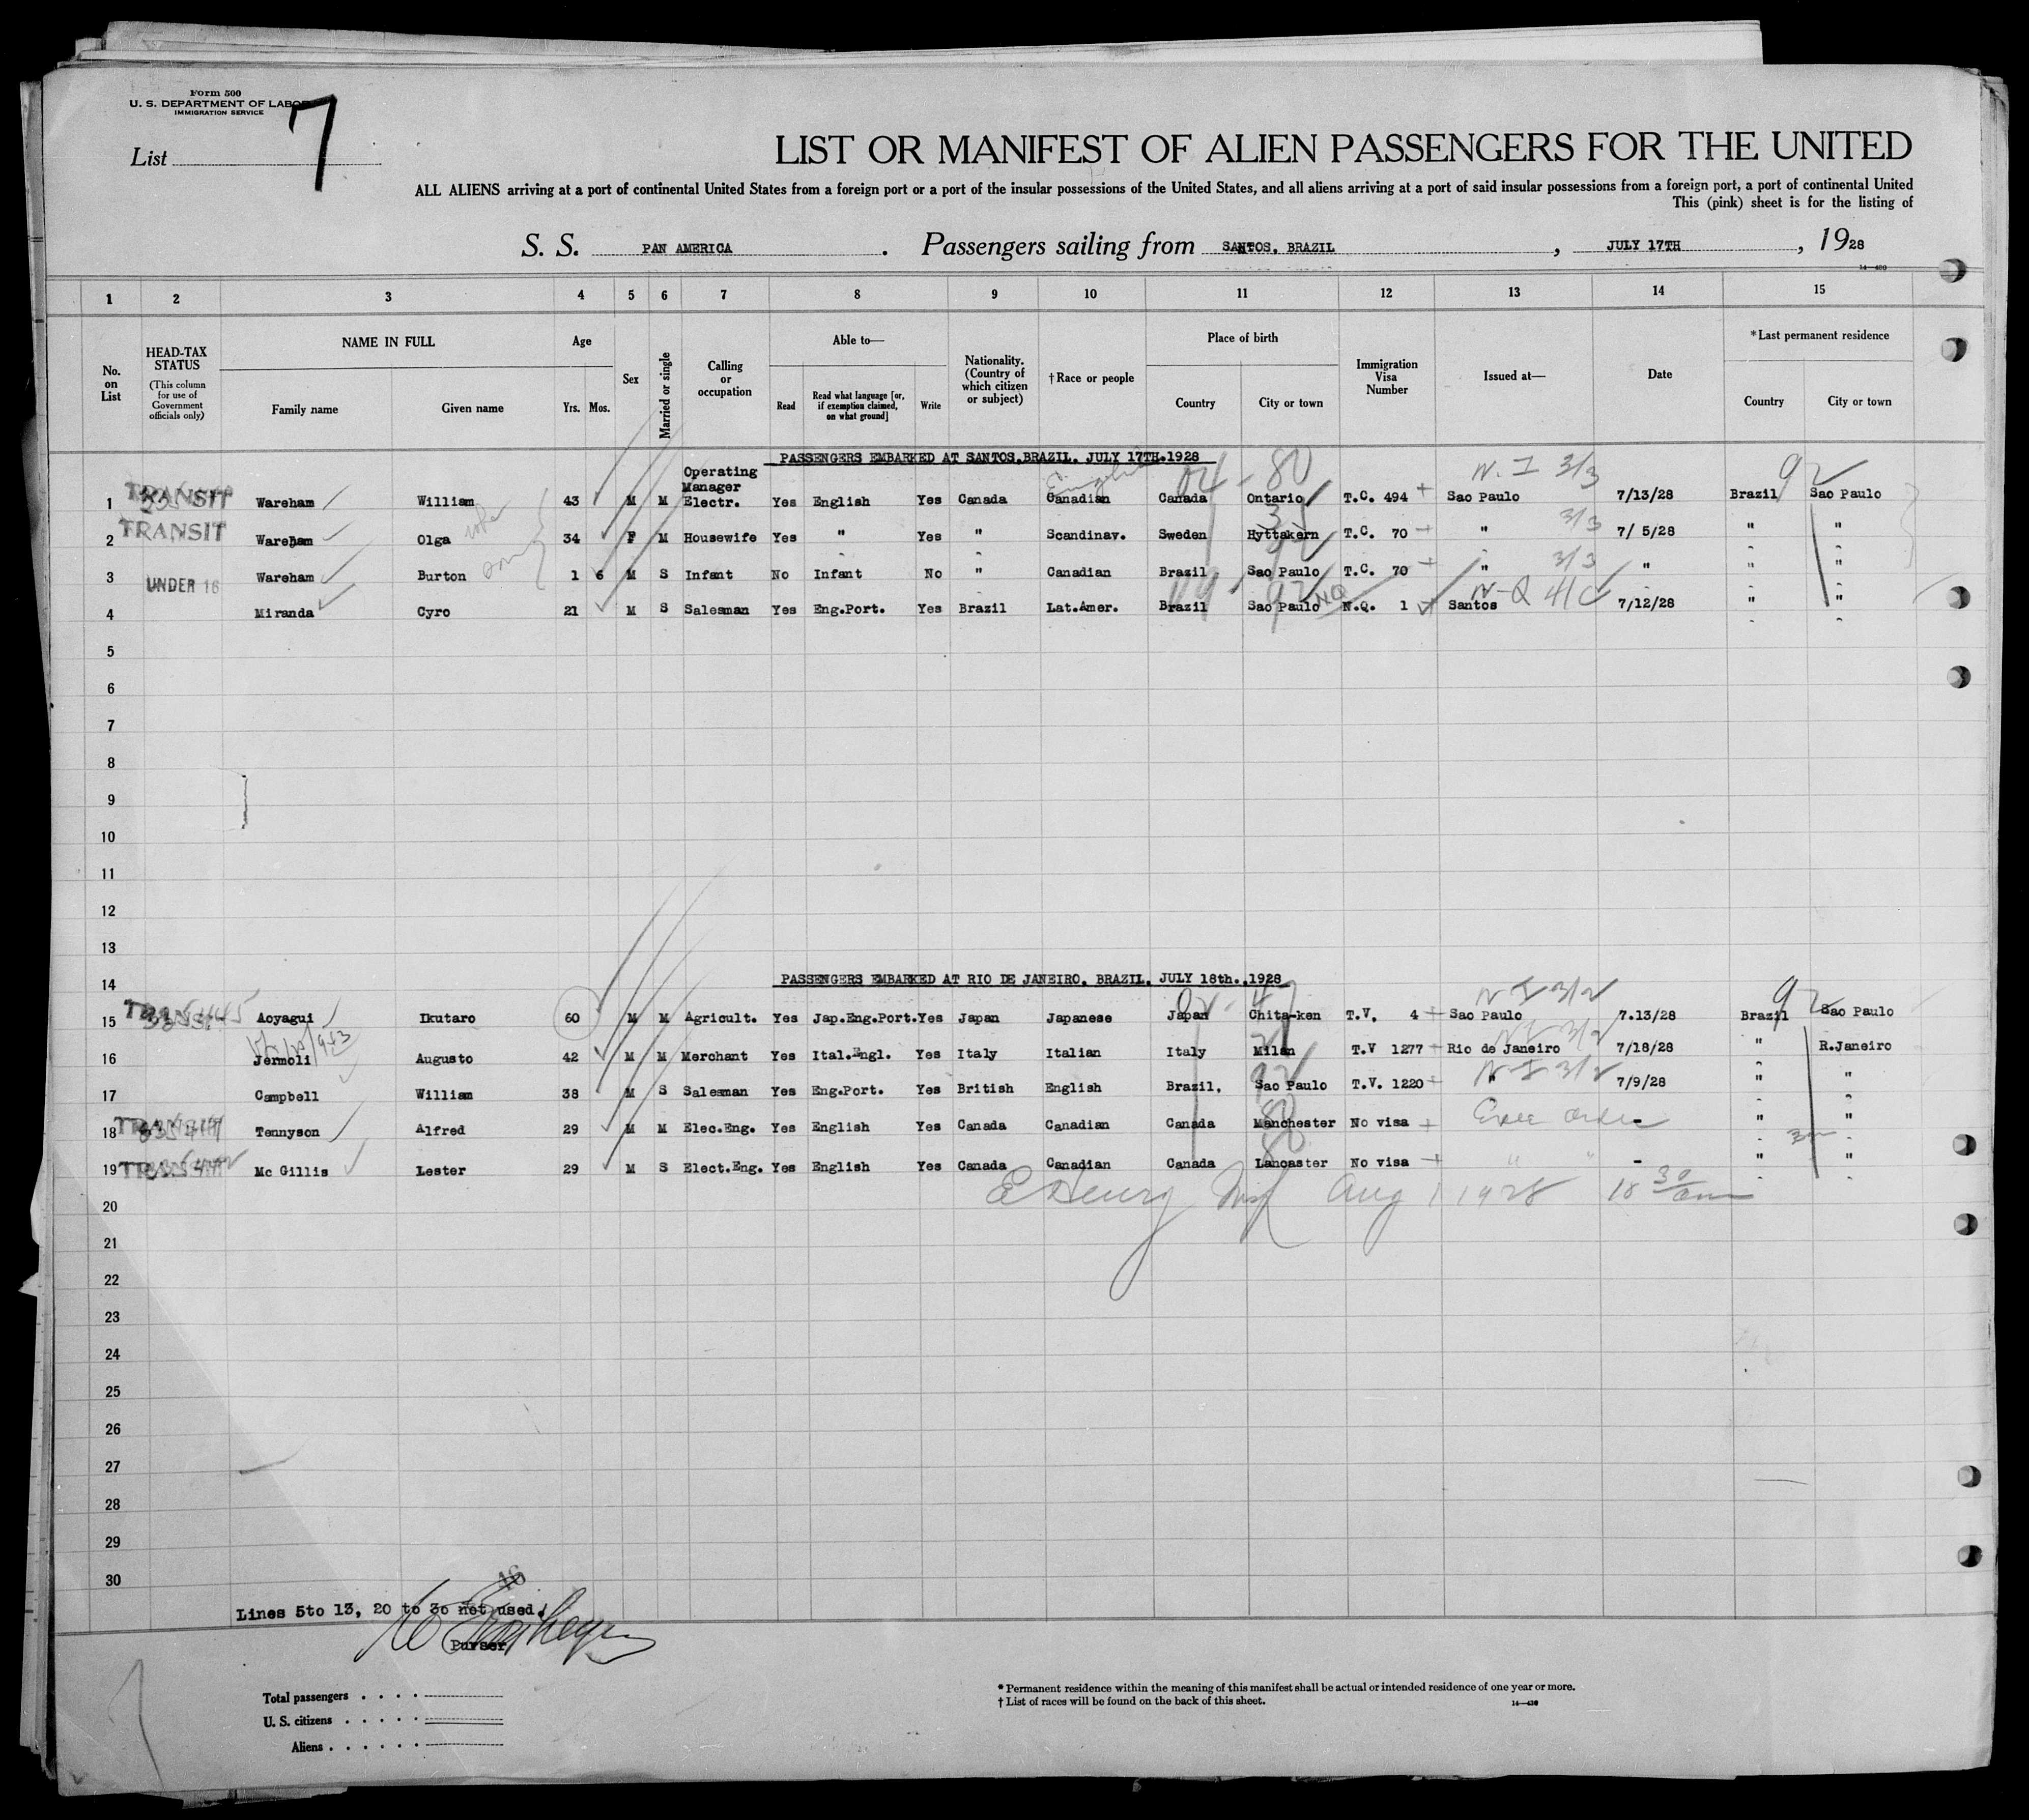 Form 500
U. S. DEPARTMENT OF LABOR
IMMIGRATION SERVICE
List 7
LIST OR MANIFEST OF ALIEN PASSENGERS FOR THE UNITED
ALL ALIENS arriving at a port of continental United States from a foreign port or a port of the insular possessions of the United States, and all aliens arriving at a port of said insular possessions from a foreign port, a port of continental United
This (pink) sheet is for the listing of
S. S. PAN AMERICA. Passengers sailing from SANTOS, BRAZIL, JULY 17TH, 1928
14—430
1 2 3 4 5 6 7 8 9 10 11 12 13 14 15
No. on List
HEAD-TAX STATUS (This column for use of Government officials only)
NAME IN FULL Family name Given name
Age Yrs. Mos.
Sex
Married or single
Calling or occupation
Able to— Read Read what language [or, if exemption claimed, on what ground] Write
Nationality. (Country of which citizen or subject)
†Race or people
Place of birth Country City or town
Immigration Visa Number
Issued at—
Date
*Last permanent residence Country City or town
PASSENGERS EMBARKED AT SANTOS, BRAZIL, JULY 17TH.1928
English 04 - 80 N. I 3/3 92
1 TRANSIT Wareham William 43 M M Operating Manager Electr. Yes English Yes Canada Canadian Canada Ontario T.C. 494 Sao Paulo 7/13/28 Brazil Sao Paulo
3/3
2 TRANSIT Wareham Olga 34 F M Housewife Yes " Yes " Scandinav. Sweden Hyttakern T.C. 70 " 7/ 5/28 " "
3/3
3 UNDER 16 Wareham Burton 1 6 M S Infant No Infant No " Canadian Brazil Sao Paulo T.C. 70 " " " "
92 NQ N-Q 4/C
4 Miranda Cyro 21 M S Salesman Yes Eng.Port. Yes Brazil Lat.Amer. Brazil Sao Paulo N.Q. 1 Santos 7/12/28 " "
5
6
7
8
9
10
11
12
13
14 PASSENGERS EMBARKED AT RIO DE JANEIRO, BRAZIL, JULY 18th.,1928
N I 3/2 92
15 TRANSIT Aoyagui Ikutaro 60 M M Agricult. Yes Jap.Eng.Port. Yes Japan Japanese Japan Chita-ken T.V. 4 Sao Paulo 7.13/28 Brazil Sao Paulo
N I 3/2
16 Jermoli Augusto 42 M M Merchant Yes Ital.Engl. Yes Italy Italian Italy Milan T.V 1277 Rio de Janeiro 7/18/28 " R.Janeiro
92 N I 3/2
17 Campbell William 38 M S Salesman Yes Eng.Port. Yes British English Brazil. Sao Paulo T.V. 1220 " 7/9/28 " "
80
18 TRANSIT Tennyson Alfred 29 M M Elec.Eng. Yes English Yes Canada Canadian Canada Manchester No visa Exec order - " "
80
19 TRANSIT Mc Gillis Lester 29 M S Elect.Eng. Yes English Yes Canada Canadian Canada Lancaster No visa " " - " "
E Henry Aug 1 1928 10 30 am
20
21
22
23
24
25
26
27
28
29
30
Lines 5to 13, 20 to 30 not used.
Purser
Total passengers
U. S. citizens
Aliens
* Permanent residence within the meaning of this manifest shall be actual or intended residence of one year or more.
† List of races will be found on the back of this sheet.
14—430